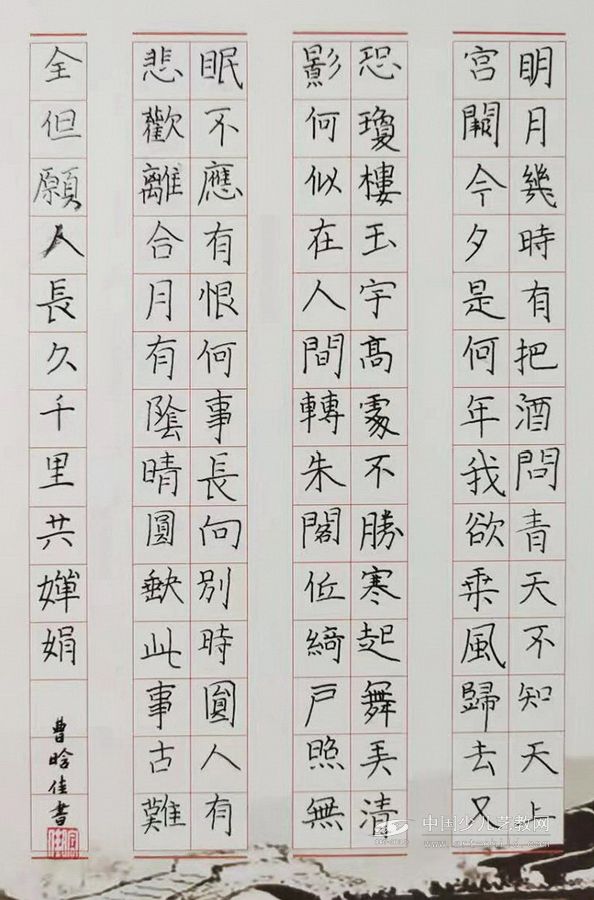 明月幾時有把酒問青天不知天上
宮闕今夕是何年我欲乘風歸去又
恐瓊樓玉宇高處不勝寒起舞弄清
影何似在人間轉朱閣低綺戶照無
眠不應有恨何事長向別時圓人有
悲歡離合月有陰晴圓缺此事古難
全但願人長久千里共嬋娟
曹晗佳書
中国少儿艺教网